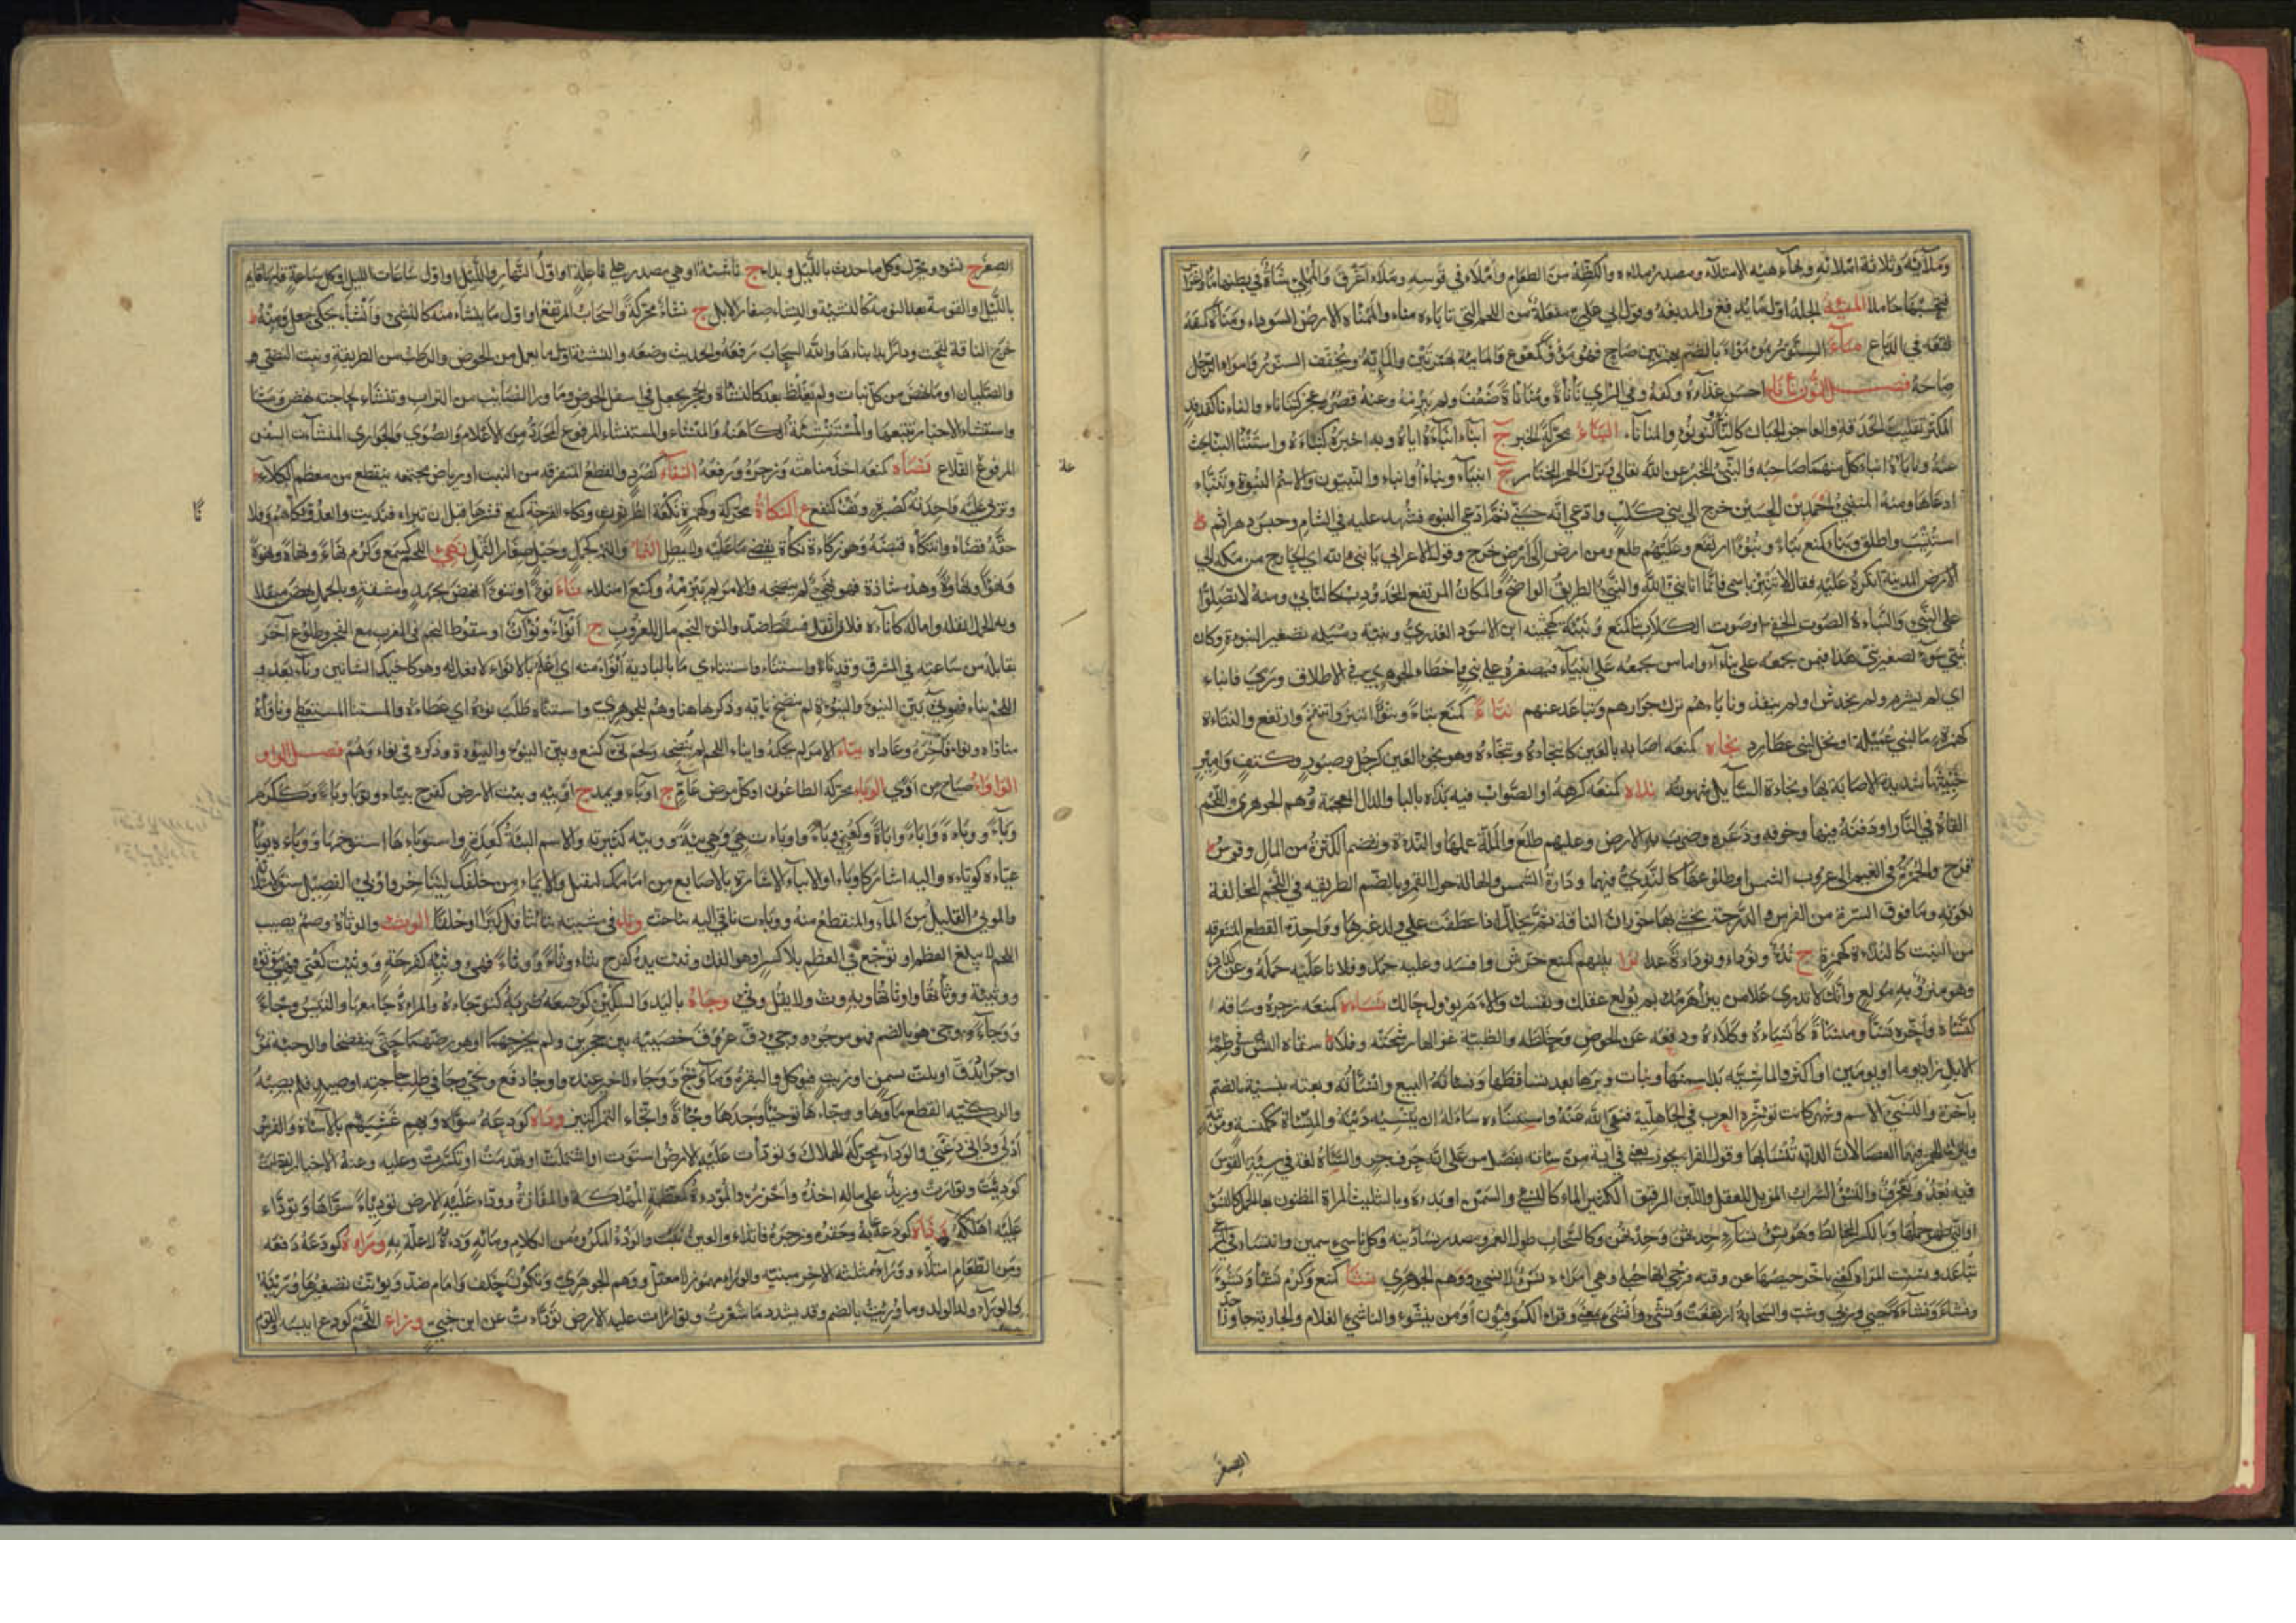 وملآيه وثلاثة املائه وبهاء هيئة الامتلاء ومصدر ملاءه والكظة من الطعام واملاء في قوسه وملاء اغرق والمملئ شاة في بطنها ماء واغراس
فتحسبها حاملا المنيئة الجلد اول ما يدبغ والمدبغة وقول ابي علي مفعلة من اللحم التي تاباه مناء والممناة الارض السوداء ومنأه كمنعه
نقعه في الدباغ مآء السنور يموء مواء بالضم بهمزتين صاح فهو مؤوء كمعوع والمائية بهمزتين والمائية ويخفف السنور واموا الرجل
صاح صياحه فصل النون نأناه احسن غذاءه وكفه وفي الراي نأنأة ومنأنأة ضعف ولم يبرمه وعنه قصر وعجز كتنأنأ والنأنأ كفدفد
المكثر تقليب الحدقة والعاجز الجبان كالنأناء والنؤنؤ والمنأنأ النبأ محركة الخبر ج انباء انبأه اياه وبه اخبره كنبأه واستنبأ النبأ بحث
عنه ونابأه انبأ كل منهما صاحبه والنبيء المخبر عن الله تعالى وترك الهمز المختار ج انبياء ونباء وانباء والنبيئون والاسم النبوءة وتنبأ
ادعاها ومنه المتنبي احمد بن الحسين خرج الى بني كلب وادعى انه حسني ثم ادعى النبوه فشهد عليه في الشام وحبس دهرا ثم
استتيب واطلق ونبأ كمنع نبأ ونبوءا ارتفع وعليهم طلع ومن ارض الى ارض خرج وقول الاعرابي يا نبيء الله اي الخارج من مكة الى
المدينة انكره عليه فقال لا تنبز باسمي فانما انا نبي الله والنبيء الطريق الواضح والمكان المرتفع المحدودب كالنابئ ومنه لا تصلوا
على النبيء والنباة الصوت الخفي او صوت الكلاب نبأ كمنع ونبيئة كجهينة ابن الاسود العذري ونبيئة مسيلمة تصغير النبوءة وكان
نبيئ سوء تصغير نبيء هذا فيمن يجمعه على نباء واما من يجمعه على انبياء فيصغره على نبي واخطاء الجوهري في الاطلاق ورمى فانبأ
اي لم يشرم ولم يخدش او لم ينفذ ونابأهم ترك جوارهم وتباعد عنهم نتأ كمنع نتأ ونتوءا انتبر وانتفخ وارتفع والنتاة
كهمزة ماء لبني عميلة او نخل لبني عطارد نجاه كمنعه اصابه بالعين كانتجاه وتنجاه وهو نجؤ العين كرجل وصبور وكتف وامير
خبيثها شديد الاصابة بها ونجاة السائل شهوته نداه كمنعه كرهه او الصواب فيه بذاه بالباء والذال المعجمة ووهم الجوهري واللحم
القاه في النار او دفنه فيها وخوفه وذعره وضرب به الارض وعليهم طلع والملة عملها والنداة وتضم الكثرة من المال وقوس
قزح والحمرة في الغيم الى غروب الشمس او طلوعها كالندئ فيهما ودارة الشمس والهالة حول القمر وبالضم الطريقة في اللحم المخالفة
لونه وما فوق السرة من الفرس والدرجة يحشى بها خوران الناقة ثم تخلل اذا عطفت على ولد غيرها وواحدة القطع المتفرقة
من النبت كالندأة كهمزة ج ندأ ونودأ نودأة عدا نزأ بينهم كمنع حرش وافسد وعليه حمل وفلانا عليه حمله وعن كذا رده
وهو منزوء به مولع وانك لا تدري علام ينزأ هرمك بم يولع عقلك ونفسك والام يؤول حالك نسأه كمنعه زجره وساقه
كنسأه واخره نسأ ومنسأة كانساه وكلاه ودفعه عن الحوض وخلطه والظبية غزالها رشحته وفلانا سقاه النسء وفي ظمء
الابل زاد يوما او يومين او اكثر والماشية بدا سمنها ونبات وبرها بعد تساقطها ونسأته البيع وانسأته وبعته بنسئة بالضم
باخرة والنسيء الاسم وشهر كانت تؤخره العرب في الجاهلية فنهى الله عنه واستنسأه سأله ان ينسئه دينه والمنسأة كمكنسة ومرتبة
وبترك الهمز فيهما العصا لان الدابة تنسأ بها وقول الفراء يجوز يعني في الاية من سأته بفصل من على انه حرف جر والسأة لغة في سية القوس
فيه بعد وتعجرف والنسء الشراب المزيل للعقل واللبن الرقيق الكثير الماء كالنسيء والسمن او بدؤه وبالتثليث المرأة المظنون بها الحمل كالنسوء
او التي ظهر حملها وبالكسر المخالط وهو نسء نساء حدثهن وخدنهن وكالسحاب طول العمر ومصدر نسأ دينه وكل ناسئ سمين وانتسأ في المرعى
تباعد ونسئت المرأة كعني تأخر حيضها عن وقته فرجي انها حبلى وهي امرأة نسء لا نسيء ووهم الجوهري نشأ كمنع وكرم نشأ ونشوءا
ونشاء ونشأة حيي وربى وشب والسحابة ارتفعت ونشئ وانشئ بمعنى وقرأ الكوفيون اومن ينشأ والناشئ الغلام والجارية جاوزا حد
الصغر
الصغر ج نشء ويحرك وكل ما حدث بالليل وبدا ج ناشئة او هي مصدر على فاعلة او اول النهار والليل او اول ساعات الليل او كل ساعة قامها قائم
بالليل او القومة بعد النومة كالنشيئة والنشء صغار الابل ج نشأ محركة والسحاب المرتفع او اول ما ينشأ منه كالنشيء وانشأ يحكي جعل ومنه
خرج الناقة لقحت ودارا بدا بناءها والله السحاب رفعه والحديث وضعه والنشيئة اول ما يعمل من الحوض والرطب من الطريفة ونبت النصي
والصليان او ما نهض من كل نبات ولم يغلظ بعد كالنشأة والحجر يجعل في اسفل الحوض وما وراء النصائب من التراب وتنشأ لحاجته نهض ومشى
واستنشأ الاخبار تتبعها والمستنشئة الكاهنة والمنشأ والمستنشأ المرفوع المحدد من الاعلام والصوى والجواري المنشآت السفن
المرفوع القلاع نصأه كمنعه اخذ بناصيته وزجره ورفعه النفأ كصرد القطع المتفرقة من النبت او رياض مجتمعة ينقطع من معظم الكلاء
وتربو عليه واحدته كصبرة ونفء كنفع ع النكأة محركة وكهمزة نكعة الطرثوث ونكأ القرحة كمنع قشرها قبل ان تبرأ فنديت والعدو نكاهم وفلانا
حقه قضاه وانتكاه قبضه وهو زكأة نكأة يقضي ما عليه ولا يمطل النمأ والنمء كجبل وحبل صغار القمل نهئ اللحم كسمع وكرم نهأ ونهاءة ونهوءة
ونهوءا ونهاوة وهذه شاذة فهو نهيء لم ينضج وانهأه والامر لم يبرمه وكمنع امتلأ ناء نوءا وتنواء نهض بجهد ومشقة وبالحمل نهض مثقلا
وبه الحمل اثقله واماله كاناءه وفلان اثقل فسقط ضد والنوء النجم مال للغروب ج انواء ونوآن او سقوط النجم في المغرب مع الفجر وطلوع آخر
يقابله من ساعته في المشرق وقد ناء واستناء واستنأى وما بالبادية انوأ منه اي اعلم بالانواء ولا فعل له وهو كاحنك الشاتين وناء بعد و
اللحم يناء فهو نيء بين النيوء والنيوءة لم ينضج يائية وذكرها هنا وهم للجوهري واستناءه طلب نوءه اي عطاءه والمستناء المستعطى وناوأه
مناوأة ونواء فاخره وعاداه نيأ الامر لم يحكمه وانياء اللحم لم ينضجه ولحم نيء كنيع وبين النيوء والنيوءة وذكره في نواء وهم فصل الواو
الوأواء صياح ابن آوى الوبأ محركة الطاعون او كل مرض عام ج اوباء ويمد ج اوبية وبئت الارض كفرح تيبأ وتوبأ وبأ وككرم
وباء ووباءة واباء واباءة وكعني وبأ واوبأت وهي وبئة ووبيئة كثيرته والاسم البئة كعدة واستوبأها استوخمها ووبأه يوبأ
عبأه كوبأه واليه اشار كاوبأ او الايباء الاشارة بالاصابع من امامك ليقبل والايماء من خلفك ليتاخر واوبئ الفصيل سنق
والموبئ القليل من الماء والمنقطع منه ووبأت ناقتي اليه تبأ حنت وتأ في مشيته يتأ تثاقل كبرا او خلقا الوثء والوثأة وصم يصيب
اللحم لا يبلغ العظم او توجع في العظم بلا كسر او هو الفك وثئت يده كفرح تثأ وثأ ووثأ فهي وثئة كفرحة ووثئت كعني فهي موثوءة
ووثيئة ووثأتها واوثأتها وبه وثء ولا يقل وثي وجأه باليد والسكين كوضعه ضربه كتوجأه والمرأة جامعها والتيس وجأ
ووجاء فوجئ هو بالضم فهو موجوء ووجيء دق عروق خصييه بين حجرين ولم يخرجهما او هو رضهما حتى تنفضخا والوجيئة تمر
او جراد يدق او يلت بسمن او زيت فيؤكل والبقرة وماء وجء ووجاء لا خير عنده واوجأ دفع ونحى وجاء في طلب حاجته او صيد فلم يصبه
والركية انقطع ماؤها ووجأها توجيئا وجدها وجأة واتجأ التمر اكتنز ودأه كودعه سواه وبهم غشيهم بالاساءة والفرس
ادلى ودأني دعني والودأ محركة الهلاك وتودأت عليه الارض استوت او اشتملت او تهدمت او تكسرت وعليه وعنه الاخبار انقطعت
كودئت وتوارت وزيد على ماله اخذه واحرزه والمودأة كمعظمة المهلكة والمفازة وودأ عليه الارض توديئا سواها وتودأ
عليه اهلكه وذأه كودعه عابه وحقره وزجره فاتذأ والعين نبت والوذء المكروه من الكلام وما به وذأة لا علة به وراءه كودعه دفعه
ومن الطعام امتلأ ووراء مثلثة الآخر مبنية والوراء مهموز لا معتل ووهم الجوهري وتكون خلف وامام ضد ويؤنث تصغيرها وريئة
والوراء ولد الولد وما ورئت بالضم وقد يشدد ما شعرت وتورأت عليه الارض تودأت عن ابن جني وزأ اللحم كودع ايبسه والقوم